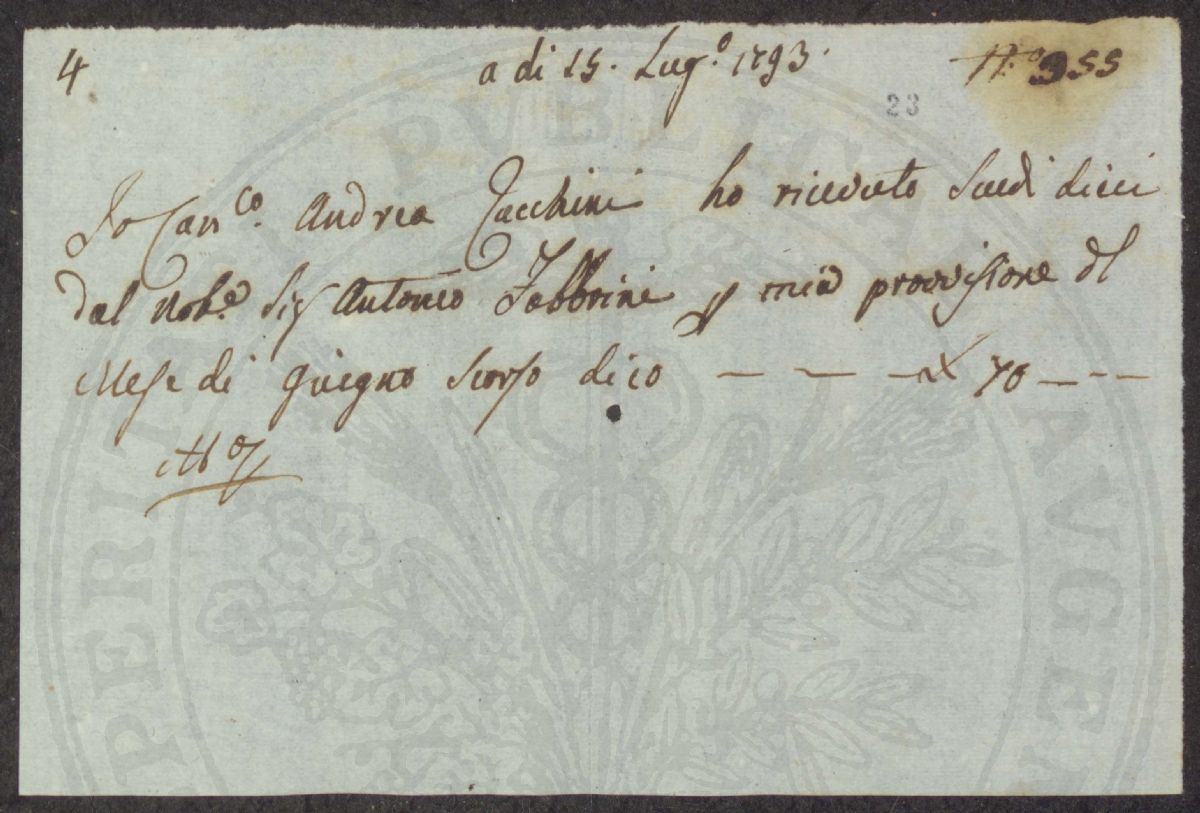 4 a di 15. Lug.º 1793. N.º 955
23
Io Can.co Andrea Zucchini ho ricevuto Scudi dieci
dal Nob.e Sig Antonio Fabbrini p mia provvisione del
Mese di Giugno scorso dico — — — 70 — — —
PERIALI PVBLICAE AVGEN